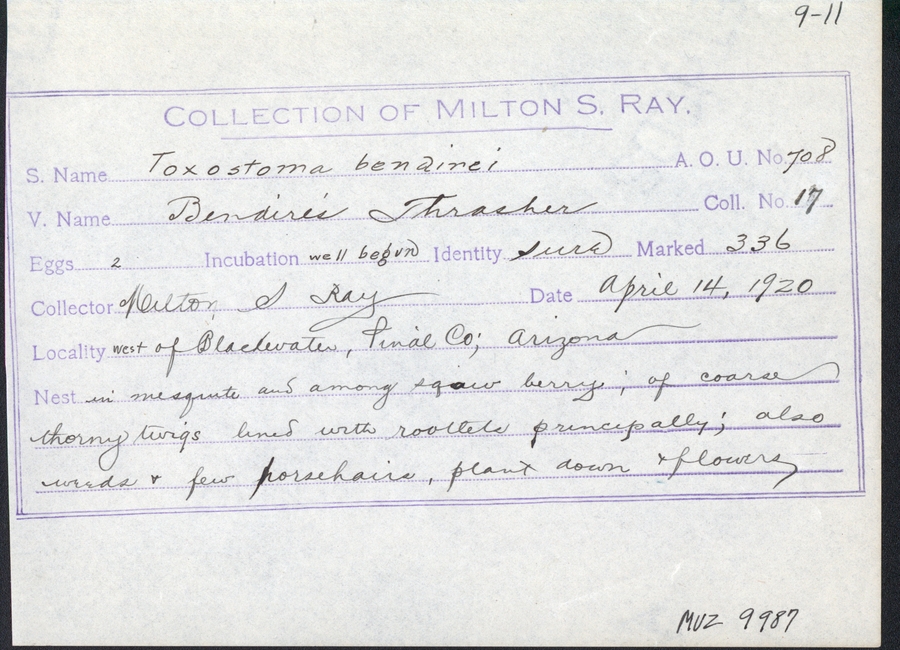 9-11
COLLECTION OF MILTON S. RAY.
S. Name Toxostoma bendirei A. O. U. No. 708
V. Name Bendire's Thrasher Coll. No. 17
Eggs 2 Incubation well begun Identity sure Marked 336
Collector Milton S Ray Date April 14, 1920
Locality west of Blackwater, Pinal Co; Arizona
Nest in mesquite and among squaw berry; of coarse
thorny twigs lined with rootlets principally; also
weeds + few horsehairs, plant down + flowers
MVZ 9987